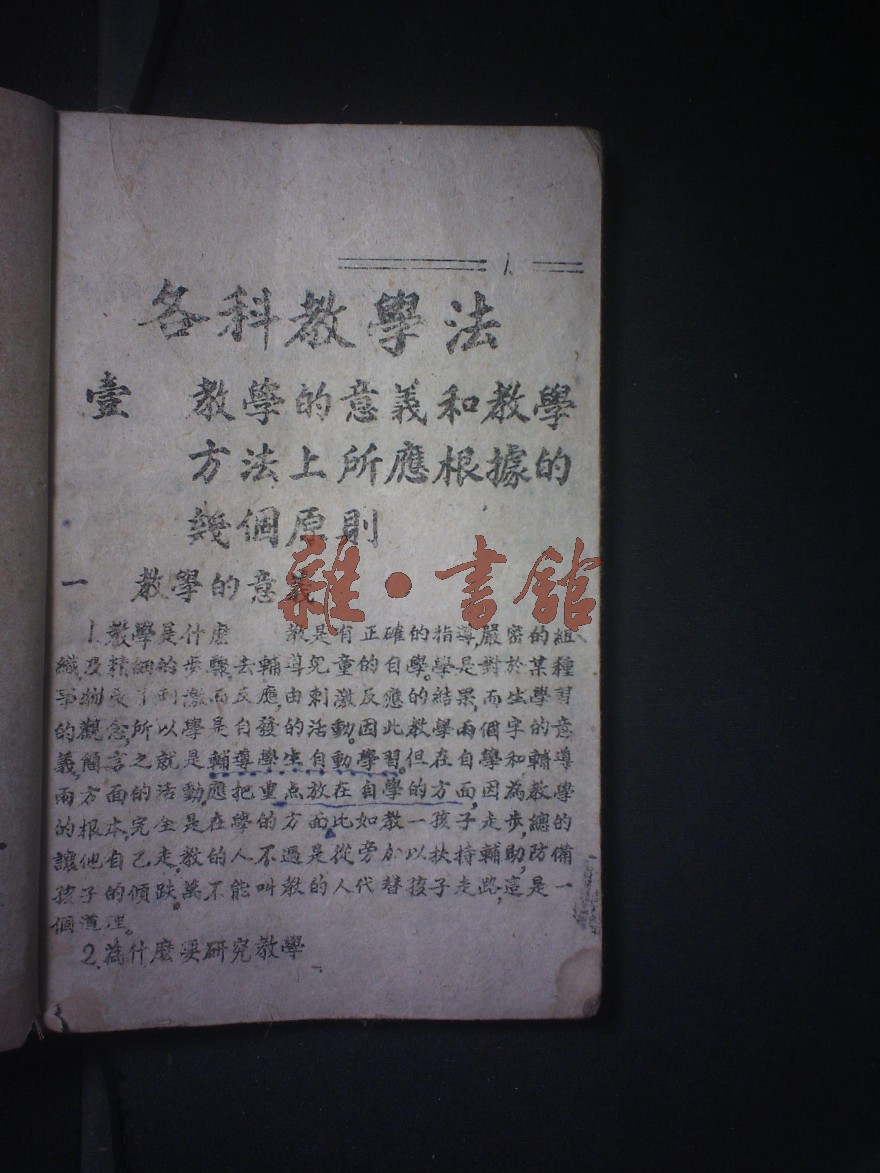 1
各科教學法
壹 教學的意義和教學
方法上所應根據的
幾個原則
雜·書館
一 教學的意義
1.教學是什麽 教是有正確的指導,嚴密的組
織及精細的步驟,去輔導兒童的自學。學是對於某種
事物受了刺激而反應,由刺激反應的結果,而生學習
的觀念,所以學是自發的活動。因此教學兩個字的意
義,簡言之就是輔導學生自動學習。但在自學和輔導
兩方面的活動,應把重点放在自學的方面,因為教學
的根本,完全是在學的方面,比如教一孩子走步,總的
讓他自己走,教的人不過是從旁加以扶持輔助,防備
孩子的傾跌,萬不能叫教的人代替孩子走路,這是一
個道理。
2.為什麼要研究教學